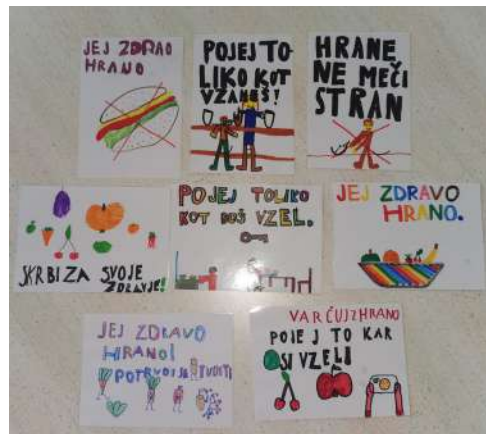 JEJ ZDRAO
HRANO
POJEJ TO-
LIKO KOT
VZAMEŠ!
HRANE
NE MEČI
STRAN
SKRBI ZA SVOJE
ZDRAVJE!
POJEJ TOLIKO
KOT BOŠ VZEL.
JEJ ZDRAVO
HRANO.
JEJ ZDRAVO
HRANO!
POTRUDI SE TUDI TI
VARČUJ Z HRANO
POJEJ TO KAR
SI VZEL!